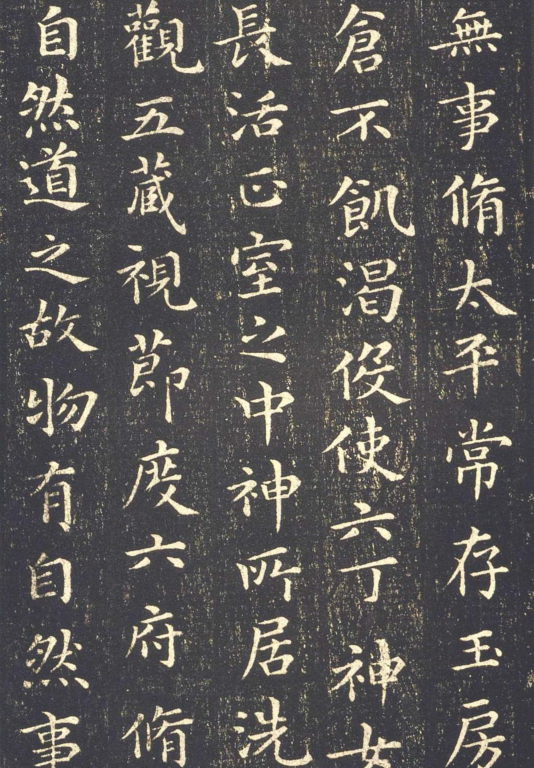 無事脩太平常存玉房
倉不飢渴伇使六丁神女
長活正室之中神所居洗
觀五藏視節度六府脩
自然道之故物有自然事